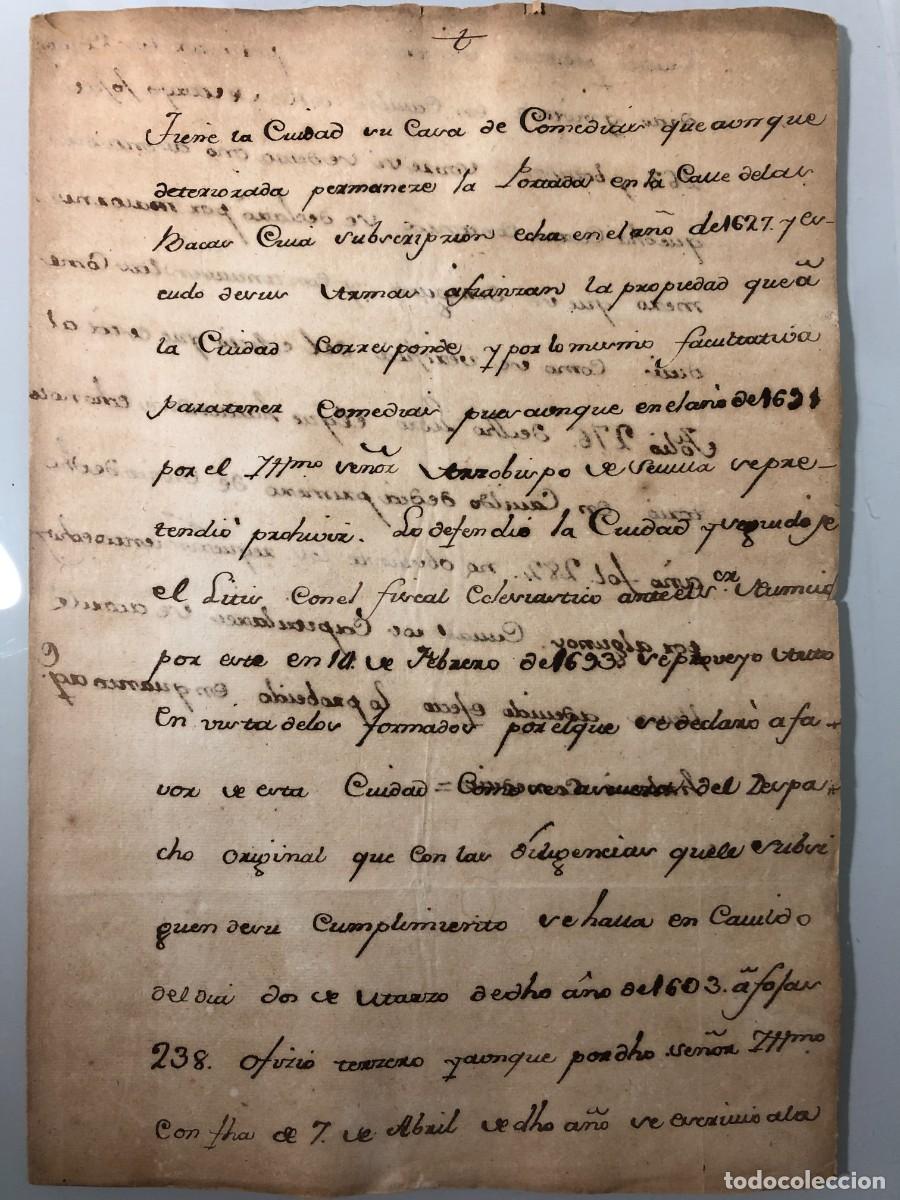 t
Tiene la Ciudad su Casa de Comedias que aunque
deteriorada permanece la Portada en la Calle de las
Bacas Cuia subscripcion echa en el año de 1627. y es-
cudo de sus Armas afianzan la propiedad que â
la Ciudad Corresponde y por lo mismo facultativa
para tener Comedias pues aunque en el año de 1631
por el Yllmo señor Arzobispo de Sevilla se pre-
tendió prohivir. Lo defendió la Ciudad y seguidose
el Litis Con el fiscal Eclesiastico ante el s.or Nuncio
por este en 14. de Febrero de 1693. se proveyo Auto
En vista de los formados por el que se declaró a fa-
vor de esta Ciudad = del Despa-
cho original que con las diligencias que le subsi
guen de su Cumplimiento se halla en Cavildo
del dia dos de Marzo de dho año de 1603. â fojas
238. Ofizio terzero y aunque por dho señor Yllmo
Con fha de 7. de Abril de dho año se escrivio a la
todocoleccion